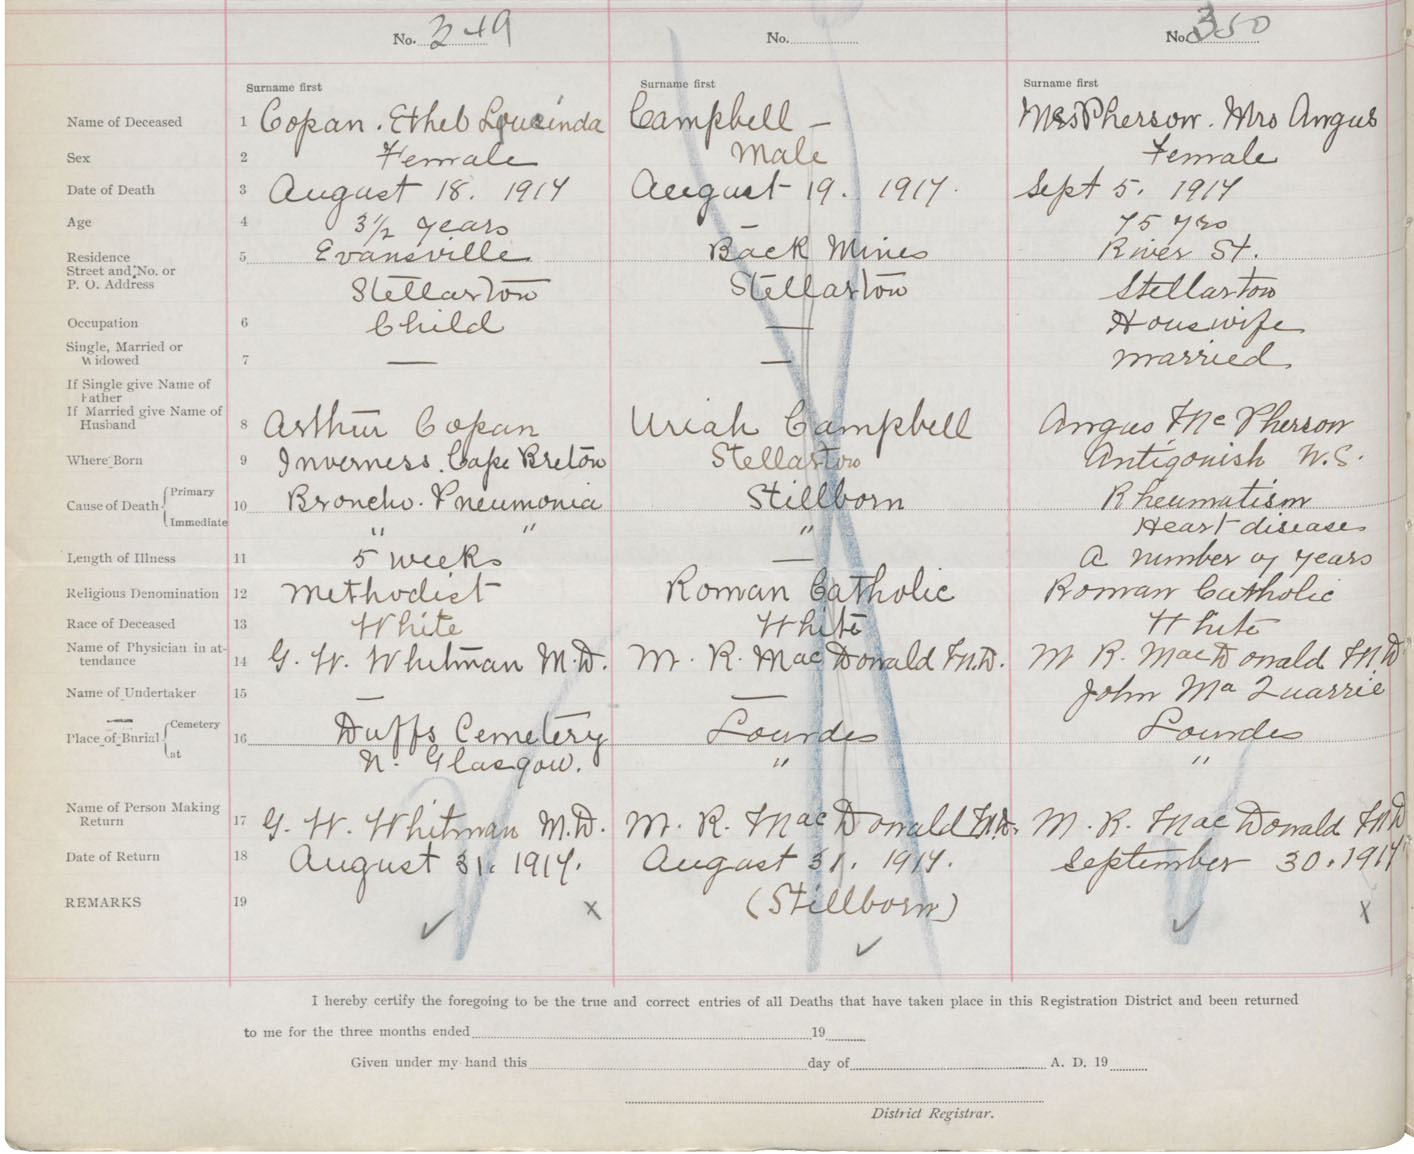 No. 349 No. No. 350
Surname first Surname first Surname first
Name of Deceased 1 Copan. Ethel Loucinda Campbell — McPherson. Mrs Angus
Sex 2 Female Male Female
Date of Death 3 August 18. 1914 August 19. 1914. Sept 5. 1914
Age 4 3½ years — 75 yrs
Residence 5 Evansville Back Mines River St.
Street and No. or
P. O. Address Stellarton Stellarton Stellarton
Occupation 6 Child — Houswife
Single, Married or
Widowed 7 — — married
If Single give Name of
Father
If Married give Name of
Husband 8 Arthur Copan Uriah Campbell Angus McPherson
Where Born 9 Inverness. Cape Breton Stellarton Antigonish N.S.
Cause of Death { Primary 10 Broncho. Pneumonia Stillborn Rheumatism
Immediate " " " Heart disease
Length of Illness 11 5 weeks — a number of years
Religious Denomination 12 Methodist Roman Catholic Roman Catholic
Race of Deceased 13 White White White
Name of Physician in at-
tendance 14 G. W. Whitman M.D. M. R. MacDonald M.D. M R. MacDonald M.D
Name of Undertaker 15 — — John Ma Quarrie
Place of Burial { Cemetery 16 Duffs Cemetery Lourdes Lourdes
at N. Glasgow. " "
Name of Person Making
Return 17 G. W. Whitman M.D. M. R. MacDonald M.D. M. R. MacDonald M.D
Date of Return 18 August 31. 1914. August 31. 1914. September 30. 1914
REMARKS 19 ✓ x (Stillborn) ✓ ✓ x
I hereby certify the foregoing to be the true and correct entries of all Deaths that have taken place in this Registration District and been returned
to me for the three months ended 19
Given under my hand this day of A. D. 19
District Registrar.